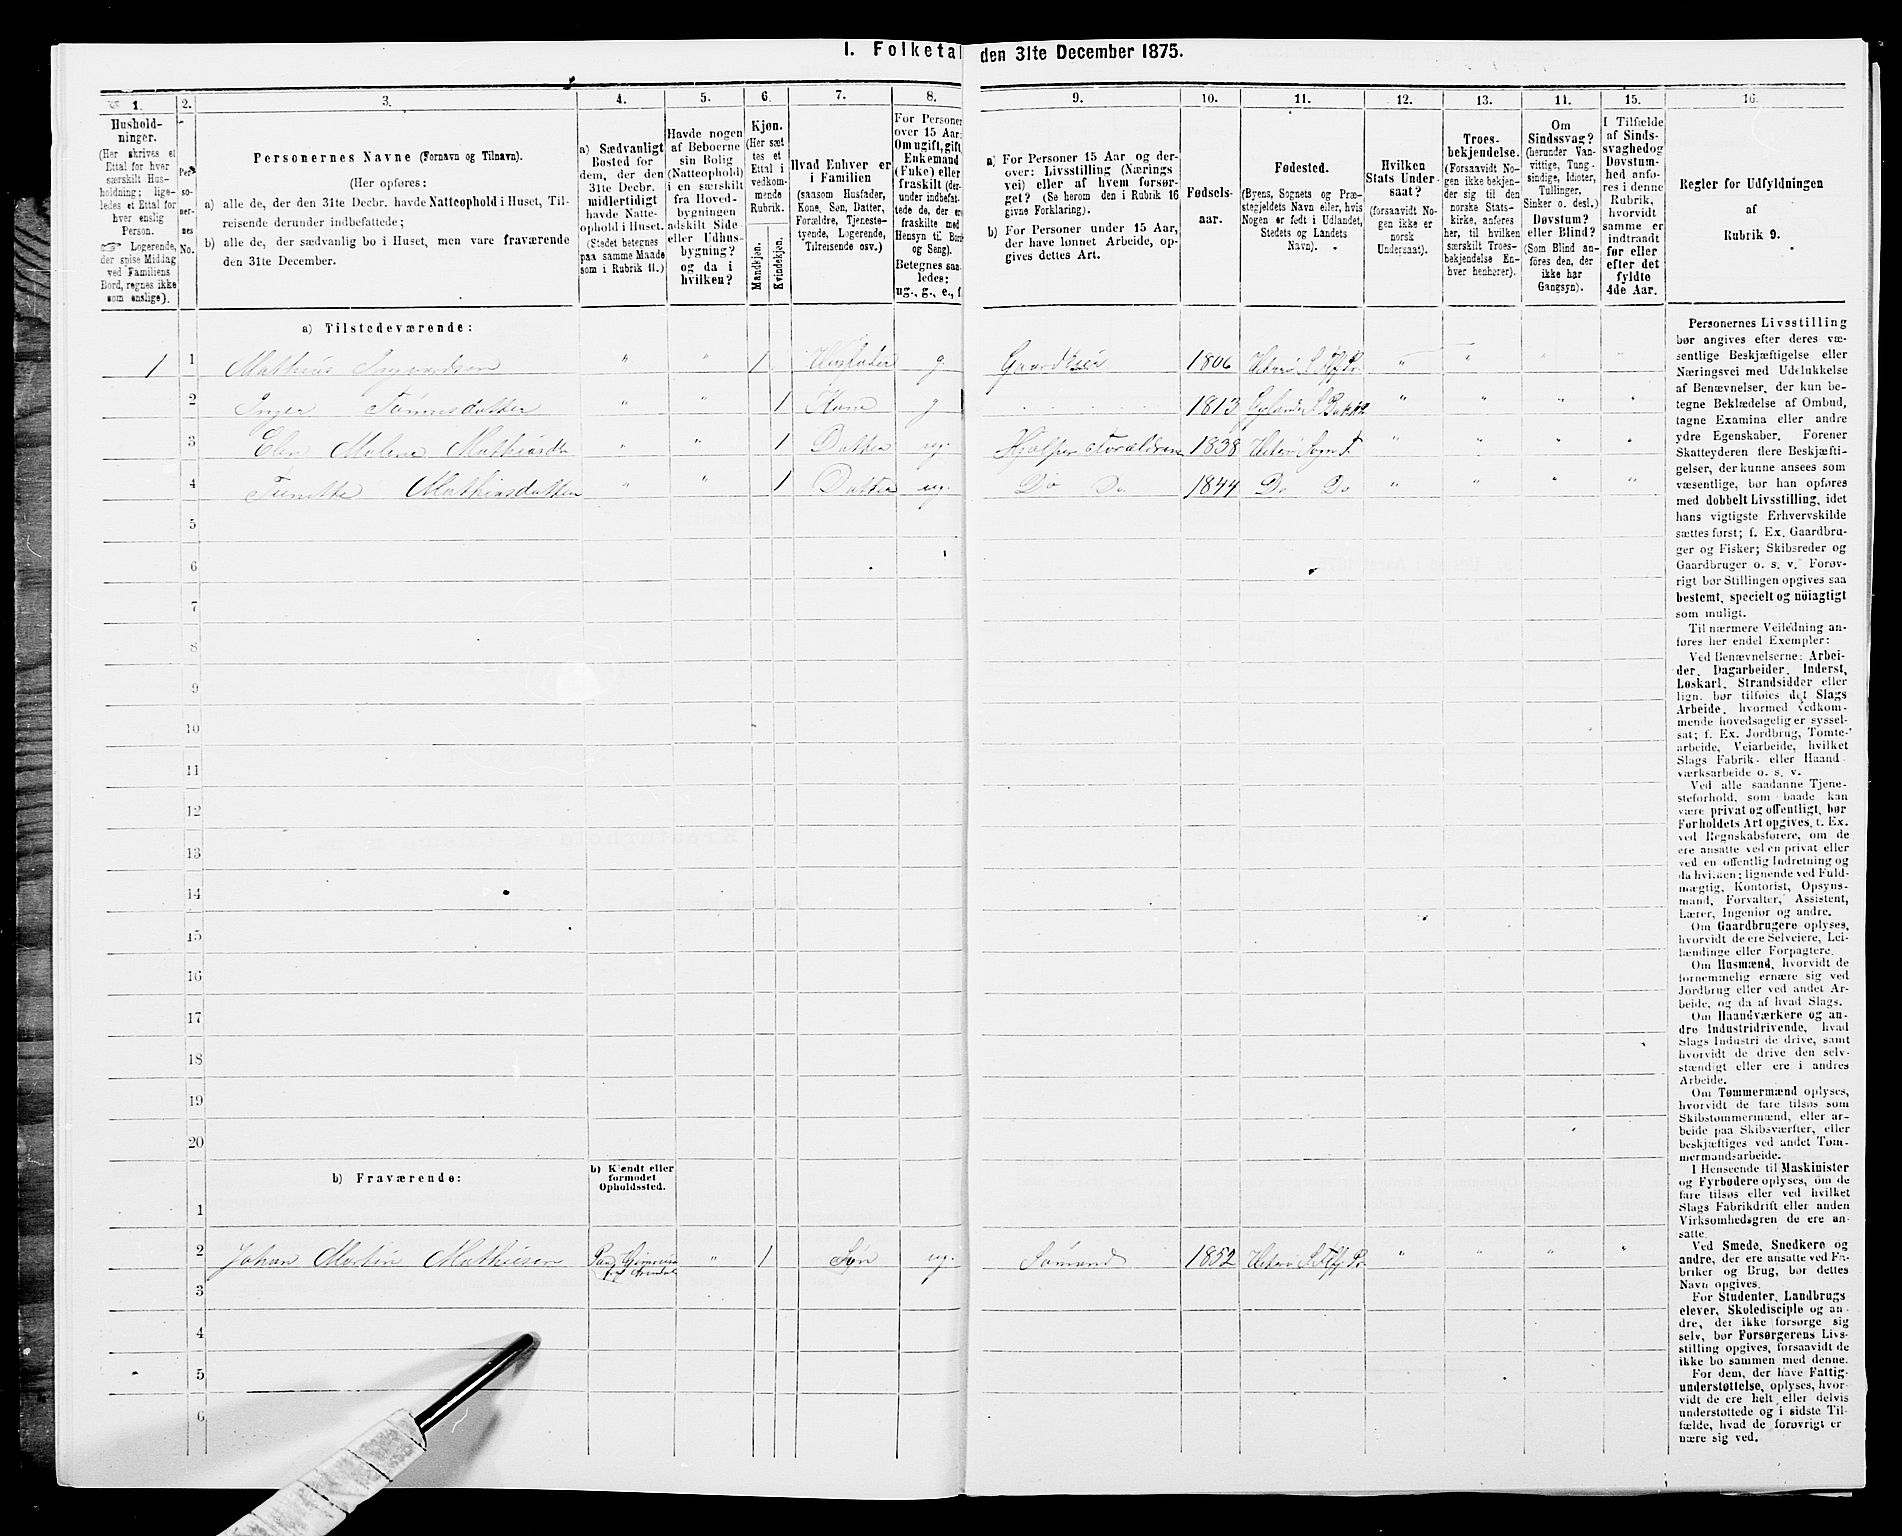 I. Folketal den 31te December 1875.
1. 2. 3. 4. 5. 6. 7. 8. 9. 10. 11. 12. 13. 14. 15. 16.
Hushold-
ninger.
(Her skrives et
Ettal for hver
særskilt Hus-
holdning; lige-
ledes et Ettal for
hver enslig
Person.
☞ Logerende,
der spise Middag
ved Familiens
Bord, regnes ikke
som enslige).
Per-
so-
ner-
nes
No.
Personernes Navne (Fornavn og Tilnavn).
(Her opføres:
a) alle de, der den 31te Decbr. havde Natteophold i Huset, Til-
reisende derunder indbefattede;
b) alle de, der sædvanlig bo i Huset, men vare fraværende
den 31te December.
a) Sædvanligt
Bosted for
dem, der den
31te Decbr.
midlertidigt
havde Natte-
ophold i Huset.
(Stedet betegnes
paa samme Maade
som i Rubrik 11.)
Havde nogen
af Beboerne
sin Bolig
(Natteophold)
i en særskilt
fra Hoved-
bygningen
adskilt Side
eller Udhus-
bygning?
og da i
hvilken?
Kjøn.
(Her sæt
tes et
Ettal i
vedkom-
mende
Rubrik.
Mandkjøn.
Kvindekjøn.
Hvad Enhver er
i Familien
(saasom Husfader,
Kone, Søn, Datter,
Forældre, Tjeneste-
tyende, Logerende,
Tilreisende osv.)
For Personer
over 15 Aar:
Om ugift, gift,
Enkemand
(Enke) eller
fraskilt (der-
under indbefat-
tede de, der ere
fraskilte med
Hensyn til Bord
og Seng).
Betegnes saa-
ledes:
ug., g., e., f.
a) For Personer 15 Aar og der-
over: Livsstilling (Nærings-
vei) eller af hvem forsør-
get? (Se herom den i Rubrik 16
givne Forklaring).
b) For Personer under 15 Aar,
der have lønnet Arbeide, op-
gives dettes Art.
Fødsels-
aar.
Fødested.
(Byens, Sognets og Præ-
stegjeldets Navn eller, hvis
Nogen er født i Udlandet,
Stedets og Landets
Navn).
Hvilken
Stats Under-
saat?
(forsaavidt No-
gen ikke er
norsk
Undersaat).
Troes-
bekjendelse.
(Forsaavidt No-
gen ikke bekjen-
der sig til den
norske Stats-
kirke, anføres
her, til hvilken
særskilt Troes-
bekjendelse En-
hver henhører).
Om
Sindssvag?
(herunder Van-
vittige, Tung-
sindige, Idioter,
Tullinger,
Sinker o. desl.)
Døvstum?
eller Blind?
(Som Blind an-
føres den, der
ikke har
Gangsyn).
I Tilfælde
af Sinds-
svaghed og
Døvstum-
hed anfø-
res i denne
Rubrik,
hvorvidt
samme er
indtraadt
før eller
efter det
fyldte
4de Aar.
Regler for Udfyldningen
af
Rubrik 9.
a) Tilstedeværende:
1 1 Mathias Ingvardsen " " 1 Husfader g. Gaardeier 1806 " " " "
2 Inger Tønnesdatter " " 1 Kone g 1813 " " " "
3 Elen Malene Mathiasdtr " " 1 Datter ug. Hjælper Forældrene 1838 " " " "
4 Tønette Mathiasdatter " " 1 Datter ug. Do Do 1844 Do Do " " " "
5
6
7
8
9
10
11
12
13
14
15
16
17
18
19
20
b) Fraværende:
b) Kjendt eller
formodet
Opholdssted.
1
2 Johan Martin Mathiesen " 1 Søn ug. Sømand 1852 " " " "
3
4
5
6
Personernes Livsstilling
bør angives efter deres væ-
sentlige Beskjæftigelse eller
Næringsvei med Udelukkelse
af Benævnelser, der kun be-
tegne Beklædelse af Ombud,
tagne Examina eller andre
ydre Egenskaber. Forener
Skatteyderen flere Beskjæfti-
gelser, der kunne ansees som
væsentlige, bør han opføres
med dobbelt Livsstilling, idet
hans vigtigste Erhvervskilde
sættes først; f. Ex. Gaardbru-
ger og Fisker; Skibsreder og
Gaardbruger o. s. v. Forøv-
rigt bør Stillingen opgives saa
bestemt, specielt og nøiagtigt
som muligt.
Til nærmere Veiledning an-
føres her endel Exempler:
Ved Benævnelserne: Arbei-
der, Dagarbeider, Inderst,
Løskarl, Strandsidder eller
lign. bør tilføies det Slags
Arbeide, hvormed vedkom-
mende hovedsagelig er syssel-
sat; f. Ex. Jordbrug, Tomte-
arbeide, Veiarbeide, hvilket
Slags Fabrik- eller Haand-
værksarbeide o. s. v.
Ved alle saadanne Tjene-
steforhold, som baade kan
være privat og offentligt, bør
Forholdets Art opgives, f. Ex.
ved Regnskabsførere, om de
ere ansatte ved en privat eller
ved en offentlig Indretning og
da hvilken; lignende ved Fuld-
mægtig, Kontorist, Opsyns-
mand, Forvalter, Assistent,
Lærer, Ingeniør og andre.
Om Gaardbrugere oplyses,
hvorvidt de ere Selveiere, Lei-
lændinge eller Forpagtere.
Om Husmænd, hvorvidt de
fornemmelig ernære sig ved
Jordbrug eller ved andet Ar-
beide, og da af hvad Slags.
Om Haandværkere og an-
dre Industridrivende, hvad
Slags Industri de drive, samt
hvorvidt de drive den selv-
stændigt eller ere i andres
Arbeide.
Om Tømmermænd oplyses,
hvorvidt de fare tilsøs som
Skibstømmermænd, eller ar-
beide paa Skibsværfter, eller
beskjæftiges ved andet Tøm-
mermandsarbeide.
I Henseende til Maskinister
og Fyrbødere oplyses, om de
fare tilsøs eller ved hvilket
Slags Fabrikdrift eller anden
Virksomhedsgren de ere an-
satte.
Ved Smede, Snedkere og
andre, der ere ansatte ved Fa-
briker og Brug, bør dettes
Navn opgives.
For Studenter, Landbrugs
elever, Skoledisciple og an-
dre, der ikke forsørge sig
selv, bør Forsørgerens Livs-
stilling opgives, forsaavidt de
ikke bo sammen med denne.
For dem, der have Fattig-
understøttelse, oplyses, hvor-
vidt de ere helt eller delvis
understøttede og i sidste Til-
fælde, hvad de forøvrigt er
nære sig ved.